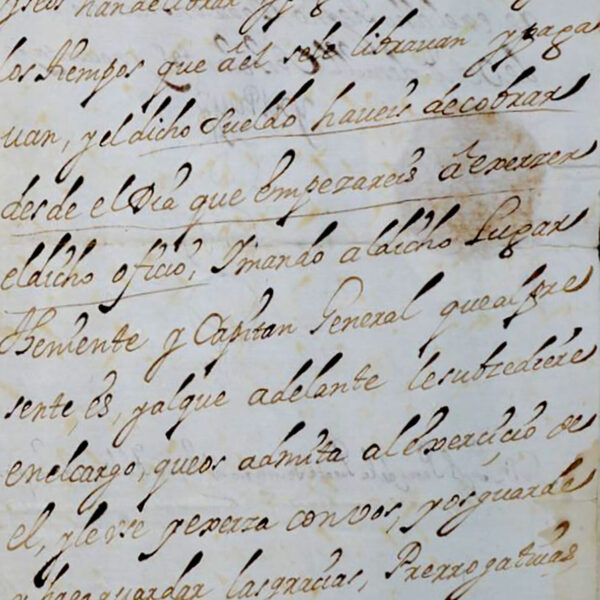 los tiempos que a el sele libravan y paga
van, y eldicho sueldo haveis decobrar
desde el Dia que empezareis â exerzer
eldicho oficio; Imando aldicho Lugar
theniente y Capitan General quealpre
sente, es, yalque adelante lesubzediere
enelcargo, queos admita alexercicio de
el, y lo use y exerza convos, yosguarde
y haga guardar lasgracias, Prerrogativas